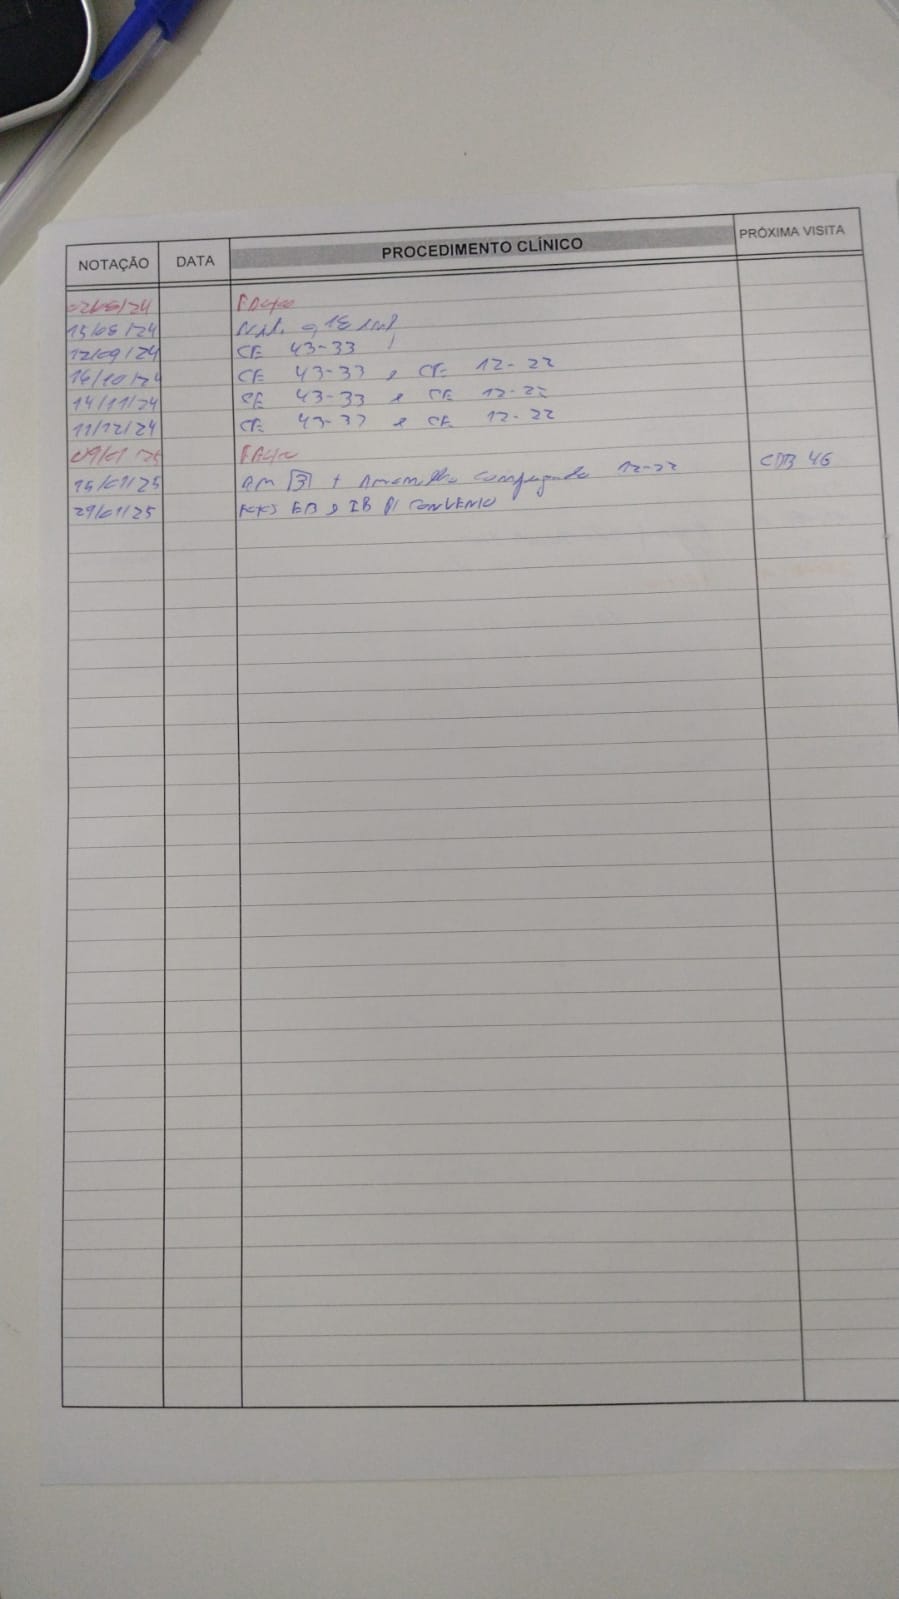 NOTAÇÃO DATA PROCEDIMENTO CLÍNICO PRÓXIMA VISITA
/24
15/08/24 0,18 inf
12/09/24 CE 43-33
16/10/24 CE 43-33 e CE 12-22
14/11/24 CE 43-33 e CE 12-22
11/12/24 CE 43-33 e CE 12-22
09/01/25
15/01/25 AM 3 + Amarrilho conjugado 12-22 CDB 46
29/01/25 EB e IB P/ CONVENIO